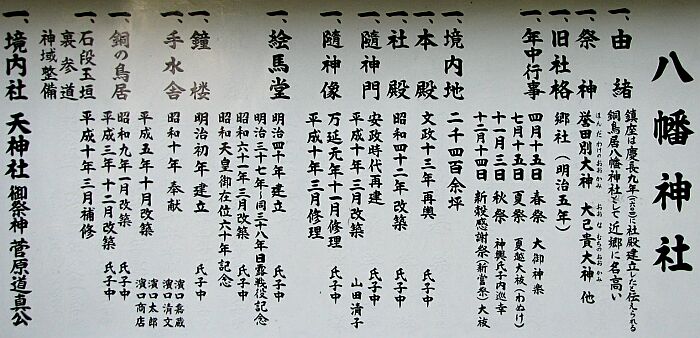 八幡神社
一、由緒 鎮座は慶長九年(一六〇四)に社殿建立したと伝えられる
銅鳥居八幡神社として近郷に名高い
一、祭神 誉田別大神 大己貴大神 他
一、旧社格 郷社(明治五年)
一、年中行事 四月十五日 春祭 大御神楽
七月十五日 夏祭 夏越大祓(わぬけ)
十一月三日 秋祭 神輿氏子内巡幸
十二月十四日 新穀感謝祭(新嘗祭)大祓
一、境内地 二千四百余坪
一、本殿 文政十三年再興 氏子中
一、社殿 昭和四十二年改築 氏子中
一、随神門 安政時代再建 氏子中
平成十年三月改築 山田清子
一、随神像 万延元年十一月修理 氏子中
平成十年三月修理
一、絵馬堂 明治四十年建立 氏子中
明治三十七年・同三十八年日露戦役記念
昭和六十一年三月改築 氏子中
昭和天皇御在位六十年記念
一、鐘楼 明治初年建立 氏子中
一、手水舎 昭和十年奉献 濱口嘉蔵
濱口清文
平成五年十月改築 濱口太郎
濱口商店
一、銅の鳥居 昭和九年一月改築 氏子中
平成三年十二月改築 氏子中
一、石段玉垣 平成十年三月補修
裏参道
神域整備
一、境内社 天神社 御祭神 菅原道真公